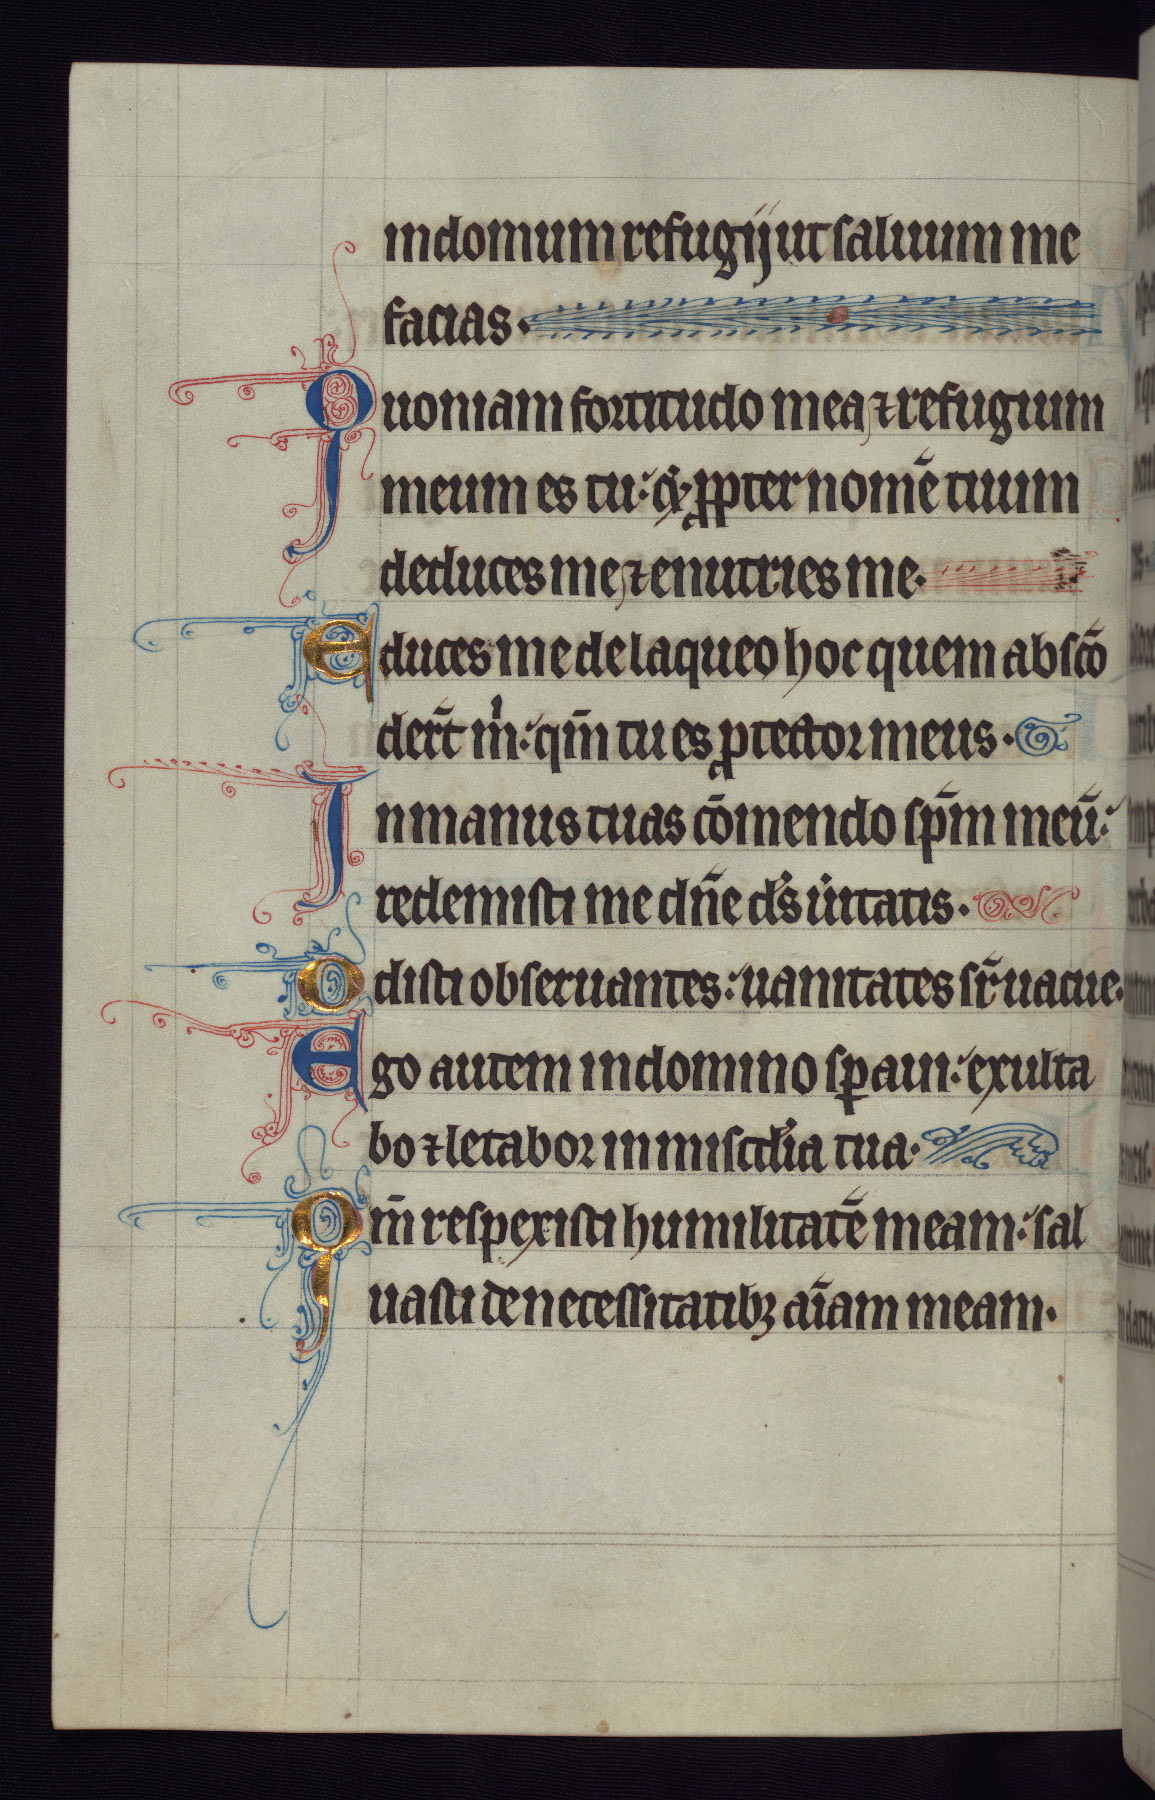 in domum refugij ut saluum me
facias.
Quoniam fortitudo mea ⁊ refugium
meum es tu: ⁊ ꝓpter nomē tuum
deduces me ⁊ enutries me.
Educes me de laqueo hoc quem abscō
der̄t m̍: qm̄ tu es ꝓtector meus.
In manus tuas cōmendo sp̄m meū:
redemisti me dn̄e ds̄ u̍itatis.
Odisti obseruantes: uanitates sr̄ uacue.
Ego autem in domino sꝑaui: exulta
bo ⁊ letabor in miscd̍ia tua.
Qm̄ respexisti humilitatē meam: sal
uasti de necessitatibꝫ aīam meam.